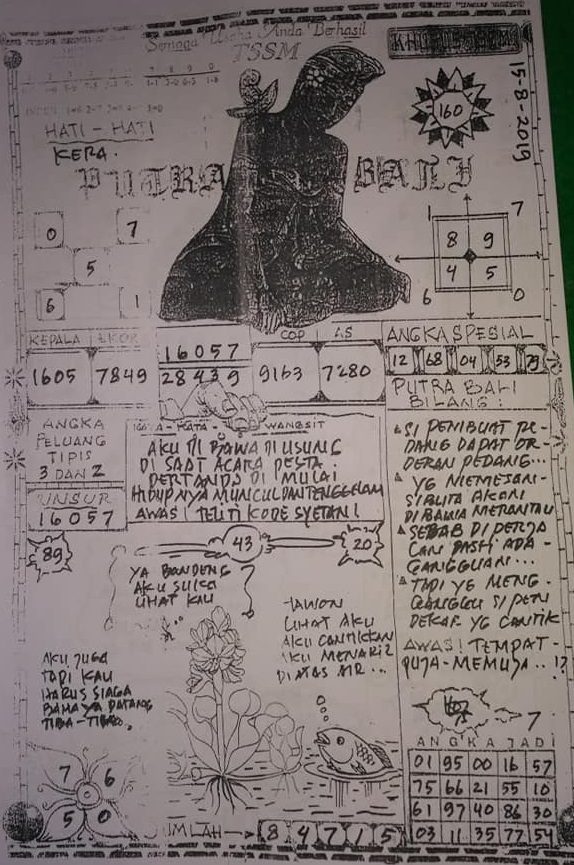 Semoga Usaha Anda Berhasil
TSSM
15-8-2019
160
HATI - HATI
KERA.
PUTRA BALI
0 7
5
6 1
1 7
8 9
4 5
6 0
KEPALA EKOR
1605 7849
16057
28439
COP AS
9163 7280
ANGKA SPESIAL
12 68 04 53 79
PUTRA BALI
BILANG :
ANGKA
PELUANG
TIPIS
3 DAN 2
UNSUR
16057
KATA - WANGSIT
AKU DI BAWA DI USUNG
DI SAAT ACARA PESTA.
PERTANDA DI MULAI
HIDUPNYA MUNCUL DAN TENGGELAM
AWAS! TELITI KODE SYETAN!
SI PEMBUAT PE-
DANG DAPAT OR-
DERAN PEDANG...
YG MEMESAN-
SI BUTA AKAN
DI BAWA MERANTAU
SEBAB DI PERJA
LAN PASTI ADA-
GANGGUAN...
TAPI YG MENG-
GANGGU SI PEN
DEKAR YG CANTIK
AWAS! TEMPAT-
PUJA-MEMUJA..!?
89
43
20
YA BANDENG
AKU SUKA
LIHAT KAU
LIHAT AKU
AKU CANTIKKAN
AKU MENARIK
DI ATAS AIR...
AKU JUGA
TAPI KAU
HARUS SIAGA
BAHAYA DATANG
TIBA-TIBA.
7 6
5 0
JUMLAH → 8 4 7 1 5
7
ANGKA JADI
01 95 00 16 57
75 66 21 55 10
61 97 40 86 30
03 11 35 77 54